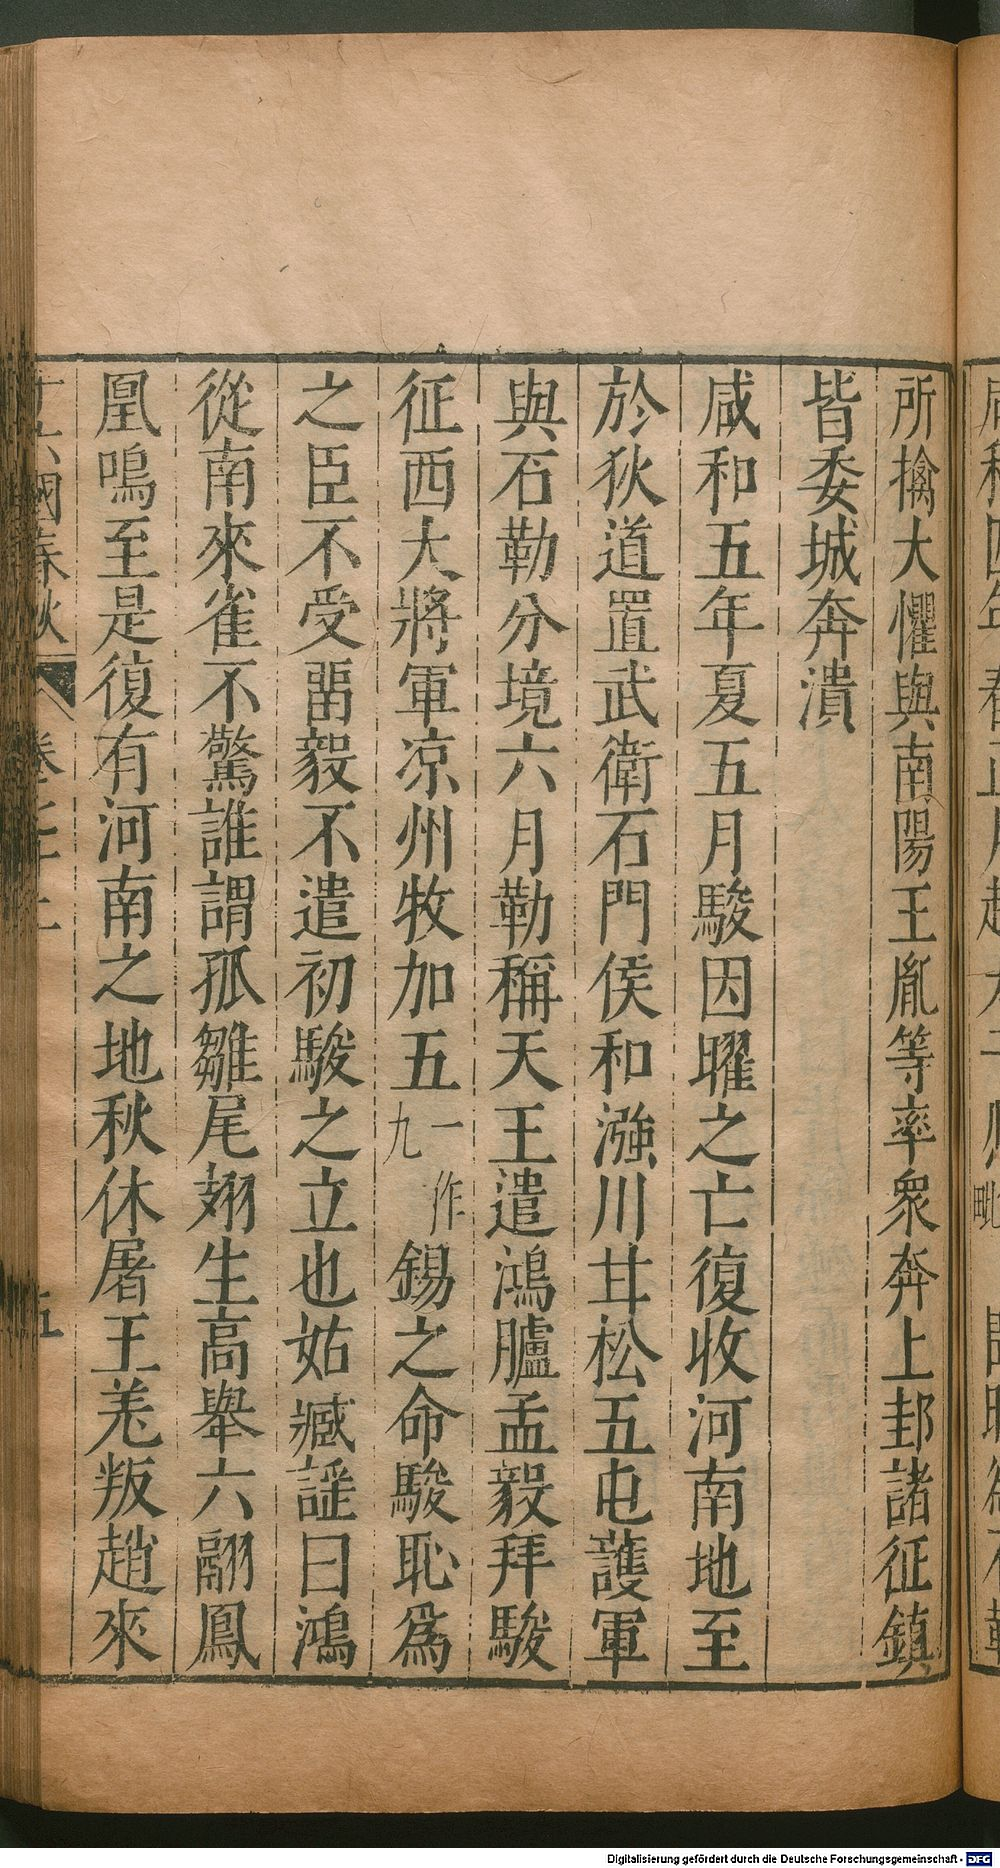 所擒大懼與南陽王胤等率衆奔上邽諸征鎮
皆委城奔潰
咸和五年夏五月駿因曜之亡復收河南地至
於狄道置武衛石門侯和漒川甘松五屯護軍
與石勒分境六月勒稱天王遣鴻臚孟毅拜駿
征西大將軍凉州牧加五一作九錫之命駿恥爲
之臣不受畱毅不遣初駿之立也姑臧謡曰鴻
從南來雀不驚誰謂孤雛尾翅生高舉六翮鳳
凰鳴至是復有河南之地秋休屠王羌叛趙來
十六國春秋 卷七十上 五
Digitalisierung gefördert durch die Deutsche Forschungsgemeinschaft - DFG